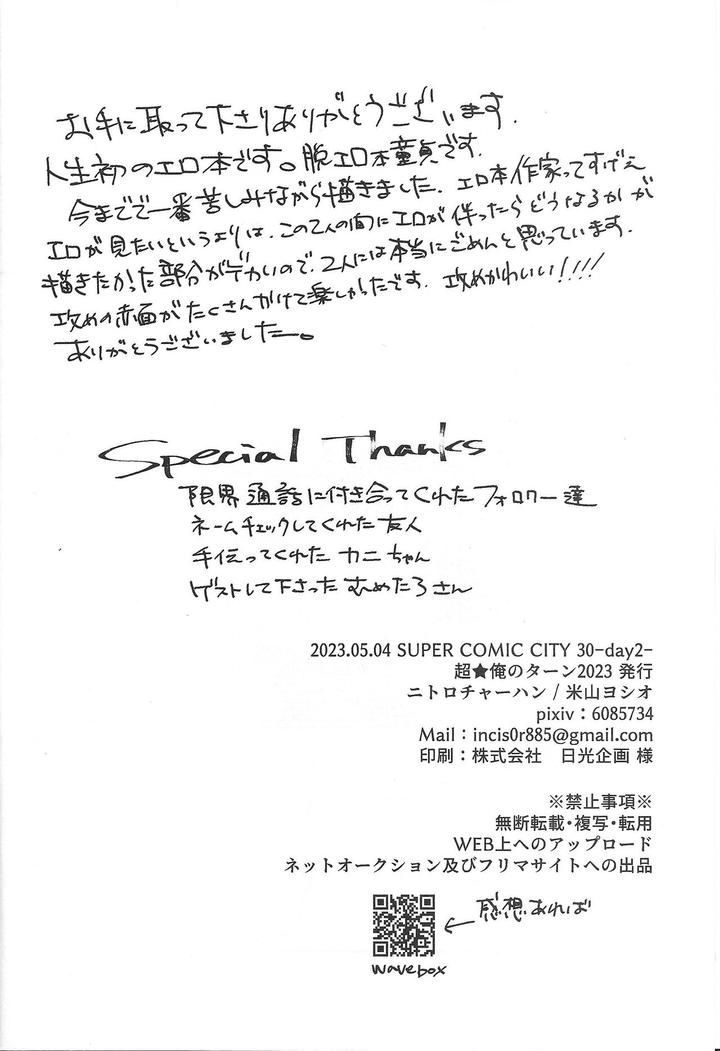 お手に取って下さりありがとうございます.
人生初のエロ本です。脱エロ本童貞です.
今までで一番苦しみながら描きました. エロ本作家ってすげえ
エロが見たいというよりは、この2人の間にエロが伴ったらどうなるかが
描きたかった部分がデカいので、2人には本当にごめんと思っています.
攻めの赤面がたくさんかけて楽しかったです. 攻めかわいい!!!!
ありがとうございましたー。
Special Thanks
限界通話に付き合ってくれたフォロワー達
ネームチェックしてくれた友人
手伝ってくれた カニちゃん
ゲストして下さった むめたろさん
2023.05.04 SUPER COMIC CITY 30-day2-
超★俺のターン2023 発行
ニトロチャーハン / 米山ヨシオ
pixiv：6085734
Mail：incis0r885@gmail.com
印刷：株式会社　日光企画 様
※禁止事項※
無断転載・複写・転用
WEB上へのアップロード
ネットオークション及びフリマサイトへの出品
感想あれば
wavebox